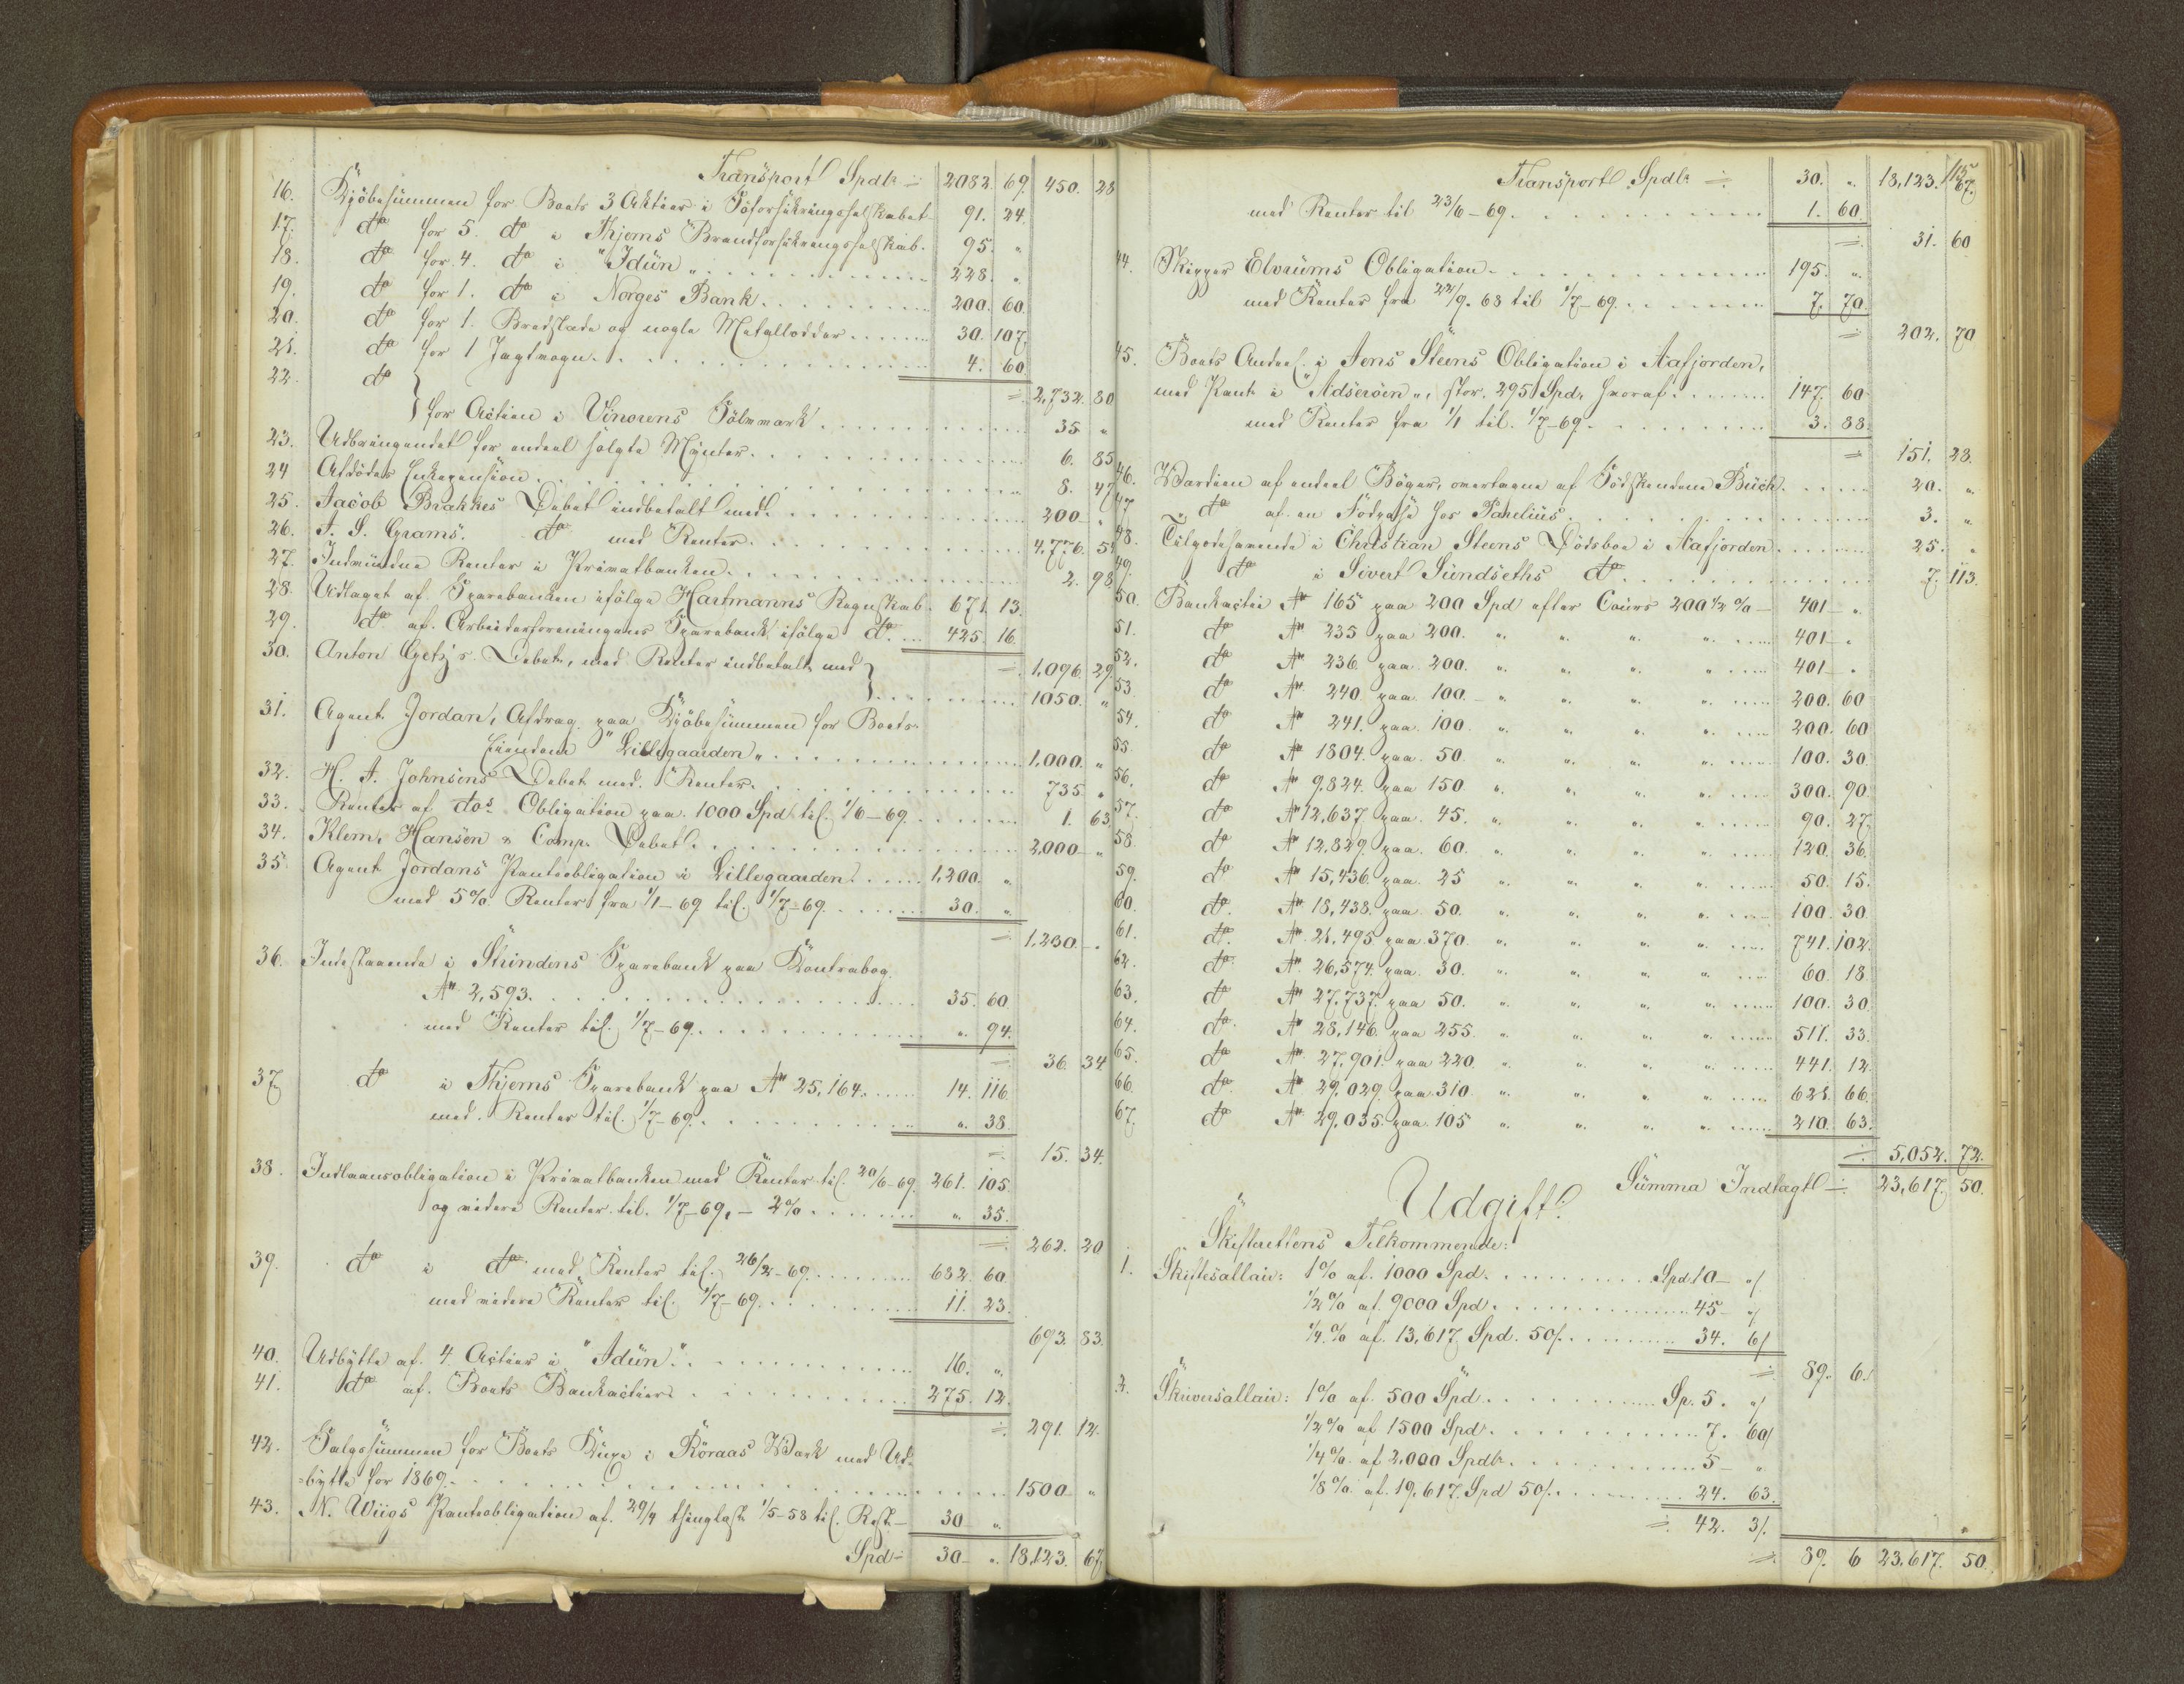 Transport Spdlr = 2082. 69. 450. 28
16. Kjöbesummen for Boets 3 Aktier i Söforsikringsselskabet 91. 24.
17. do for 5. do i Thjems Brandforsikringsselskab. 95. "
18. do for 4. do i "Idun" 228. "
19. do for 1. do i Norges Bank 200. 60.
20. do for 1. Bredslæde og nogle Metallodder 30. 107.
21. do for 1 Jagtvogn 4. 60.
22. do = 2,732. 80
} for Actien i Vinorens Sölvmærk 35 "
23. Udbringendet for endeel solgte Mynter 6. 85
24 Afdödes Enkepension 8. 47
25. Jacob Brækkes Debet indbetalt med 200 "
26. J. S. Grams. do med Renter 4,776. 51
27. Indvundne Renter i Privatbanken 2. 98
28. Udtaget af Sparebanken ifölge Hartmanns Regnskab. 671. 13.
29. do af Arbeiderforeningens Sparebank ifölge do 425. 16.
= 1,096. 29.
30. Anton Getz's Debet, med Renter indbetalt med } 1050. "
31. Agent Jordan, Afdrag paa Kjöbesummen for Boets
Eiendom "Lillegaarden" 1,000. "
32. H. A. Johnsens Debet med Renter 735. "
33. Renter af dos Obligation paa 1000 Spd til 1/6-69. 1. 63
34. Klem, Hansen & Comp. Debet 2,000 "
35 Agent Jordans Panteobligation i Lillegaarden 1,200. "
med 5% Renter fra 1/1-69 til 1/7-69. 30. "
= 1,230. "
36. Indestaaende i Strindens Sparebank paa Kontrabog
No 2,593. 35. 60.
med Renter til 1/7-69. " 94.
= 36. 34
37. do i Thjems Sparebank paa No 25,164. 14. 116
med Renter til 1/7-69. " 38.
= 15. 34.
38. Indlaansobligation i Privatbanken med Renter til 20/6-69. 261. 105.
og videre Renter til 1/7-69, - 2% " 35.
= 262. 20
39. do i do med Renter til 26/2-69. 682. 60.
med videre Renter til 1/7-69. 11. 23.
693. 83.
40. Udbytte af 4 Actier i "Idun" 16. "
41. do af Boets Bankactier 275. 12.
= 291. 12.
42. Salgssummen for Boets Kuxe i Röraas Værk med Ud-
bytte for 1869. 1500 "
43. N. Wiigs Panteobligation af 29/4 thinglæst 1/5-58 til Rest 30 "
Spd = 30 " 18,123. 67
115
Transport Spdlr = 30. " 18,123. 67.
med Renter til 23/6-69. 1. 60.
= 31. 60
44. Skipper Elvrums Obligation 195. "
med Renter fra 22/9-68 til 1/7-69. 7. 70.
= 202. 70
45. Boets Andeel i Jens Steens Obligation i Aafjorden,
med Pant i "Adseröen", stor 295 Spd, hvoraf 147. 60
med Renter fra 1/1 til 1/7-69. 3. 88.
= 151. 28.
46. Værdien af endeel Böger, overtagne af Södskendene Buch 20. "
47 " do af en hos Panelius 3. "
48. Tilgodehavende i Christian Steens Dödsboe i Aafjorden 25. "
49. do i Sivert Sundseths do 7. 113.
50. Bankactie No 165 paa 200 Spd efter Cours 200 1/2 % 401 "
51. do No 235 paa 200. " " " " 401 "
52. do No 236 paa 200. " " " " 401 "
53. do No 240 paa 100. " " " " 200. 60
54. do No 241. paa 100 " " " " 200. 60
55. do No 1804. paa 50. " " " " 100. 30.
56. do No 9,824. paa 150 " " " " 300. 90.
57. do No 12,637 paa 45. " " " " 90. 27.
58. do No 12,829. paa 60. " " " " 120. 36.
59. do No 15,436. paa 25 " " " " 50. 15.
60. do. No 18,438. paa 50. " " " " 100. 30
61. do. No 21,495 paa 370. " " " " 741. 102.
62. do. No 26,574. paa 30. " " " " 60. 18
63. do No 27,737. paa 50. " " " " 100. 30
64. do. No 28,146. paa 255. " " " " 511. 33.
65. do No 27,901. paa 220. " " " " 441. 12.
66. do. No 29,029. paa 310 " " " " 621. 66.
67. do No 29,035. paa 105 " " " " 210. 63.
= 5,052. 72.
Summa Indtægt = 23,617. 50.
Udgift.
Skifterettens Tilkommende:
1. Skiftesallair: 1% af 1000 Spd Spd. 10 - "
1/2% af 9000 Spd 45 - "
1/4% af 13,617 Spd. 50 34. 6
= 89. 6.
2. Skriversallair: 1% af 500 Spd Sp. 5. "
1/2% af 1500 Spd 7. 60
1/4% af 2,000 Spdlr 5 - "
1/8% af 19,617 Spd 50 24. 63.
= 42. 3
= 89. 6 23,617. 50.